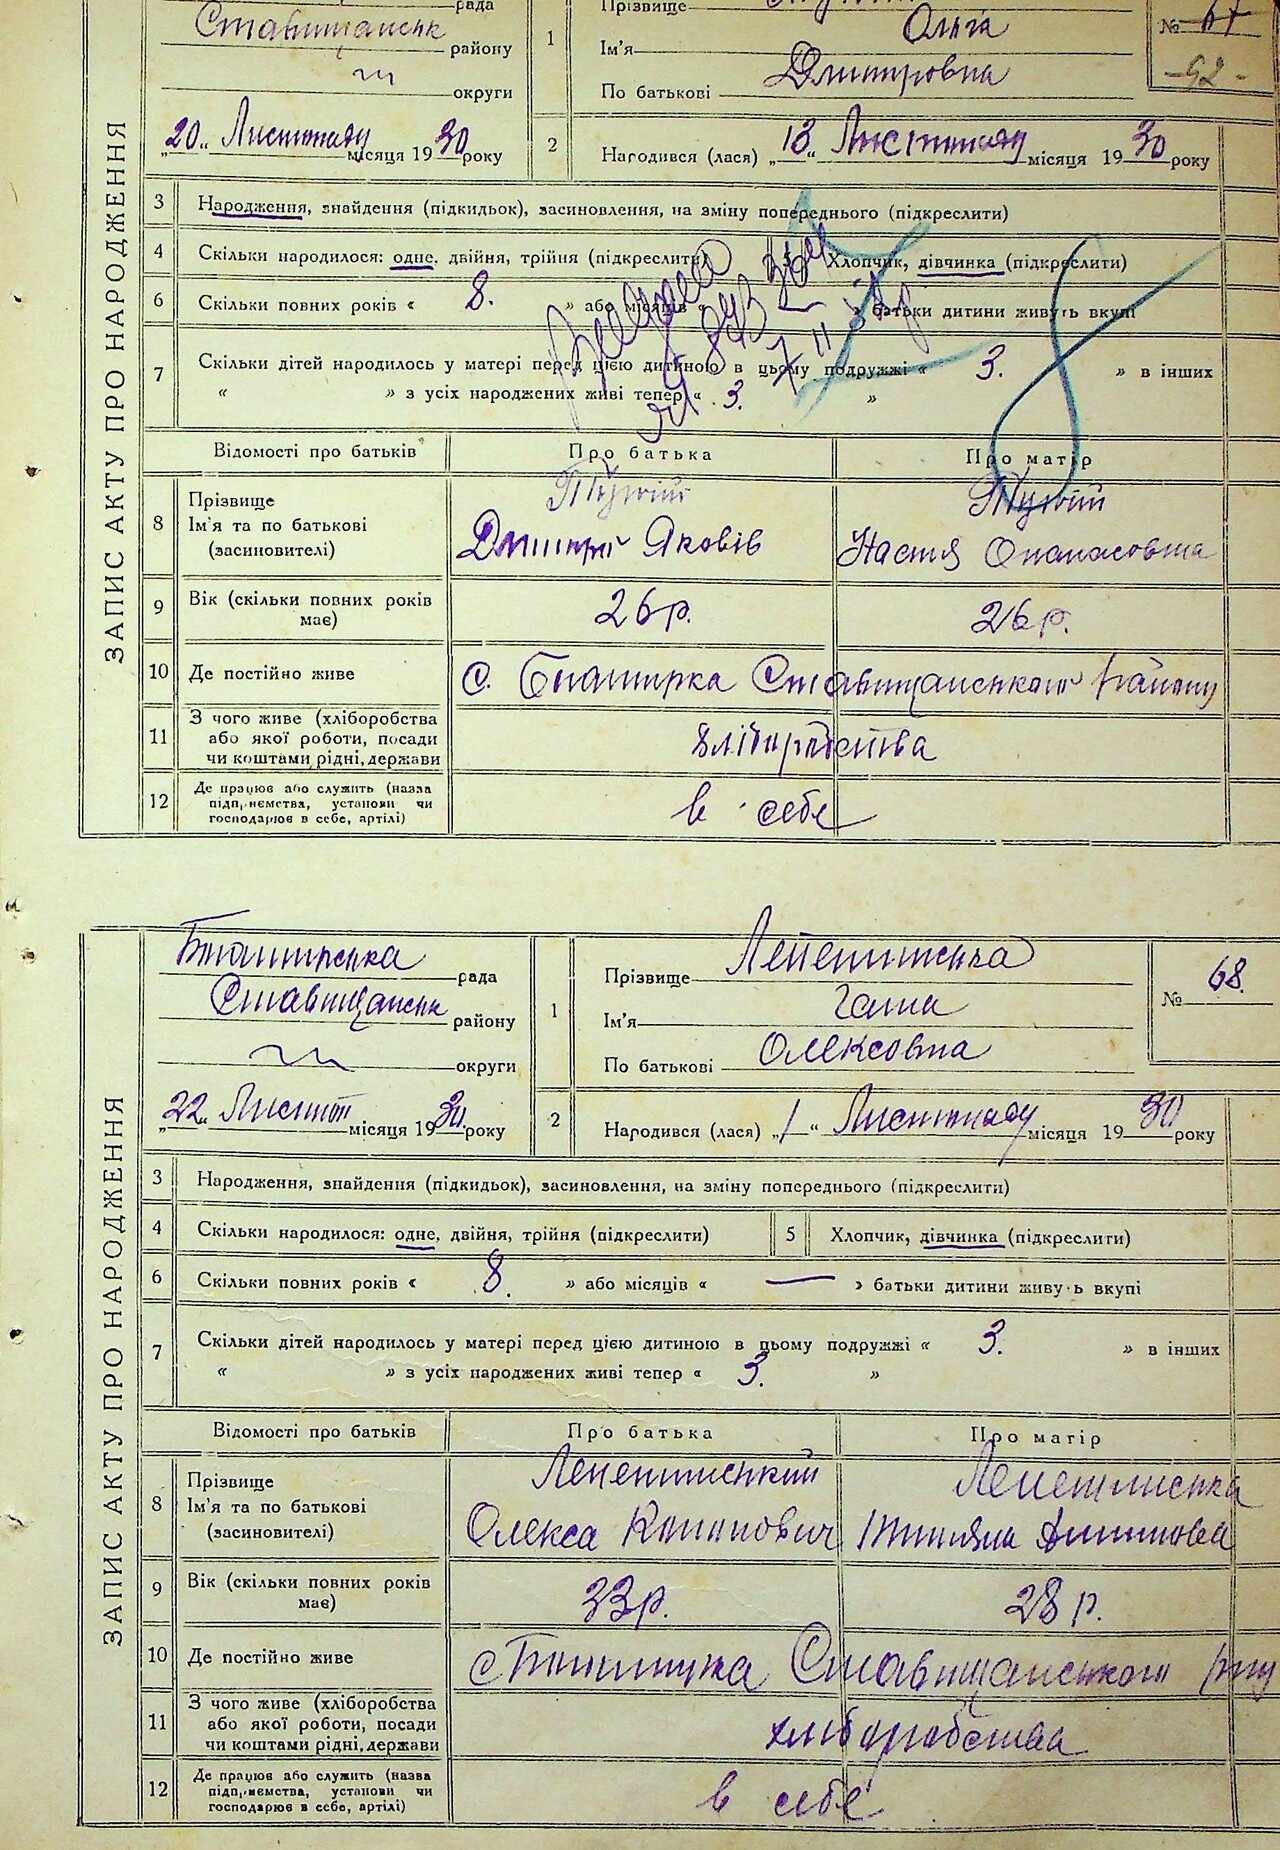 рада
Ставищанськ району
округи
"20" Листопаду місяця 1930 року
ЗАПИС АКТУ ПРО НАРОДЖЕННЯ
1 Прізвище
Ім'я Ольга
По батькові Дмитровна
№ 67
-92-
2 Народився (лася) "13" Листопаду місяця 1930 року
3 Народження, знайдення (підкидьок), засиновлення, на зміну попереднього (підкреслити)
4 Скільки народилося: одне, двійня, трійня (підкреслити) 5 Хлопчик, дівчинка (підкреслити)
6 Скільки повних років « 8. » або місяців « — » батьки дитини живуть вкупі
7 Скільки дітей народилось у матері перед цією дитиною в цьому подружжі « 3. » в інших
« » з усіх народжених живі тепер « 3. »
Відомості про батьків Про батька Про матір
8 Прізвище
Ім'я та по батькові Дмитрій Яковів Настя Опанасовна
(засиновителі)
9 Вік (скільки повних років має) 26 р. 26 р.
10 Де постійно живе с. Ставищанського Району
11 З чого живе (хліборобства
або якої роботи, посади хліборобства
чи коштами рідні, держави
12 Де працює або служить (назва
підприємства, установи чи в себе
господарює в себе, артілі)
ЗАПИС АКТУ ПРО НАРОДЖЕННЯ
рада
Ставищанськ району
округи
"22" Листоп місяця 1930 року
1 Прізвище Лепетинська
Ім'я Гана
По батькові Олексовна
№ 68.
2 Народився (лася) "1" Листопаду місяця 1930 року
3 Народження, знайдення (підкидьок), засиновлення, на зміну попереднього (підкреслити)
4 Скільки народилося: одне, двійня, трійня (підкреслити) 5 Хлопчик, дівчинка (підкреслити)
6 Скільки повних років « 8. » або місяців « — » батьки дитини живуть вкупі
7 Скільки дітей народилось у матері перед цією дитиною в цьому подружжі « 3. » в інших
« » з усіх народжених живі тепер « 3. »
Відомості про батьків Про батька Про матір
8 Прізвище Лепетинський Лепетинська
Ім'я та по батькові Олекса Кононович
(засиновителі)
9 Вік (скільки повних років має) 33 р. 28 р.
10 Де постійно живе с Ставищанського р-ну
11 З чого живе (хліборобства
або якої роботи, посади хліборобства
чи коштами рідні, держави
12 Де працює або служить (назва
підприємства, установи чи в себе
господарює в себе, артілі)